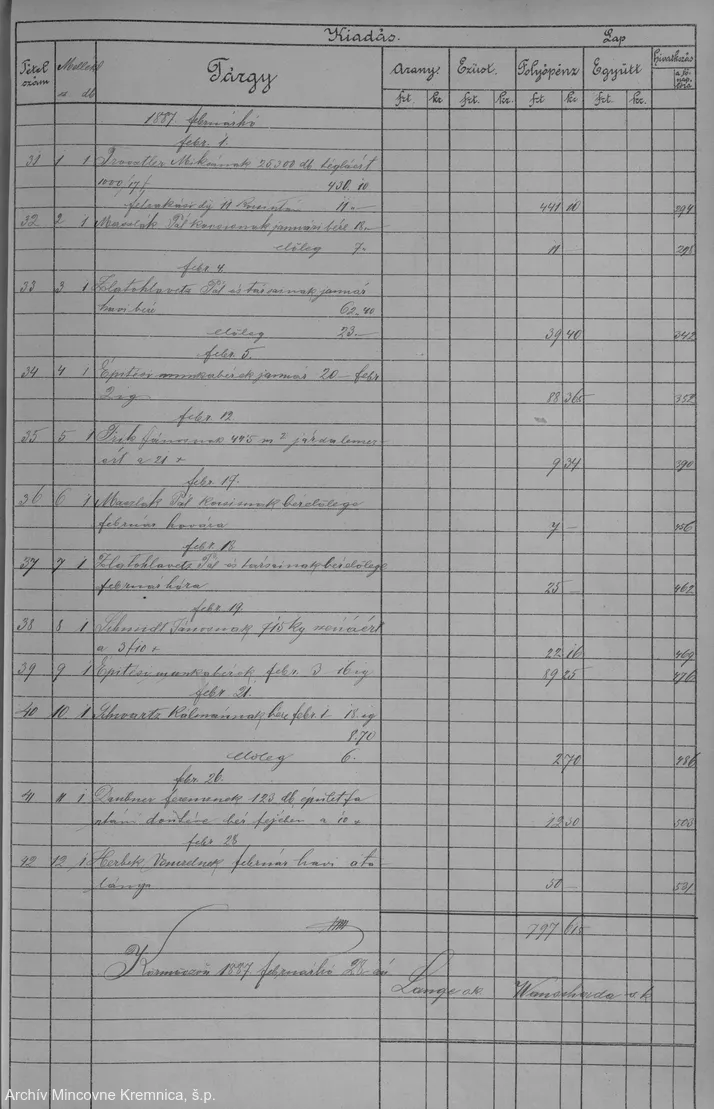 Kiadás. Lap
Tétel szám Mellékl. Tárgy Arany. Ezüst. Folyópénz Együtt Hivatkozás
sz. db. frt. kr. frt. kr. frt kr frt. kr. a fő napló
1887 februárhó
febr. 1.
31 1 1 Miksának 25300 db. téglaért
1000/17/ 430.10
felrakási díj 11 11 - 441 10 294
32 2 1 Maslák Pál kocsisnak januári bére 18.-
előleg 7.- 11 298
febr. 4.
33 3 1 Zlatohlavetz Pál és társainak január
havi bér 62.40
előleg 23.- 39 40 342
febr. 5.
34 4 1 Építési munkabérek január 20 - febr
2 ig 88 36 352
febr. 12.
35 5 1 Jánosnak 44.5 m2 járda
ért a 21 9 34 390
febr. 17.
36 6 1 Maslak Pál kocsisnak bérelolege
február havára 7 - 456
febr. 18
37 7 1 Zlatohlavetz Pál és társainak bérelőlege
februárhóra 25 - 462
febr. 19.
38 8 1 Schmidt Jánosnak 715 kg
a 3f10 22 16 469
39 9 1 Építési munkabérek febr. 3 - 16 ig 89 25 476
febr. 21.
40 10 1 Schwartz Kálmánnak bére febr. 1 - 18. ig
8.70
előleg 6. 2 70 486
febr. 26.
41 11 1 Daubner Ferencnek 123 db. épületfa
után bér fejében a 10 12 30 503
febr. 28
42 12 1 Herbek február havi áta
lánya 50 - 531
797 615
Körmöczön 1887 februárhó 28-án
Lange s.k. s.k.
Archív Mincovne Kremnica, š.p.